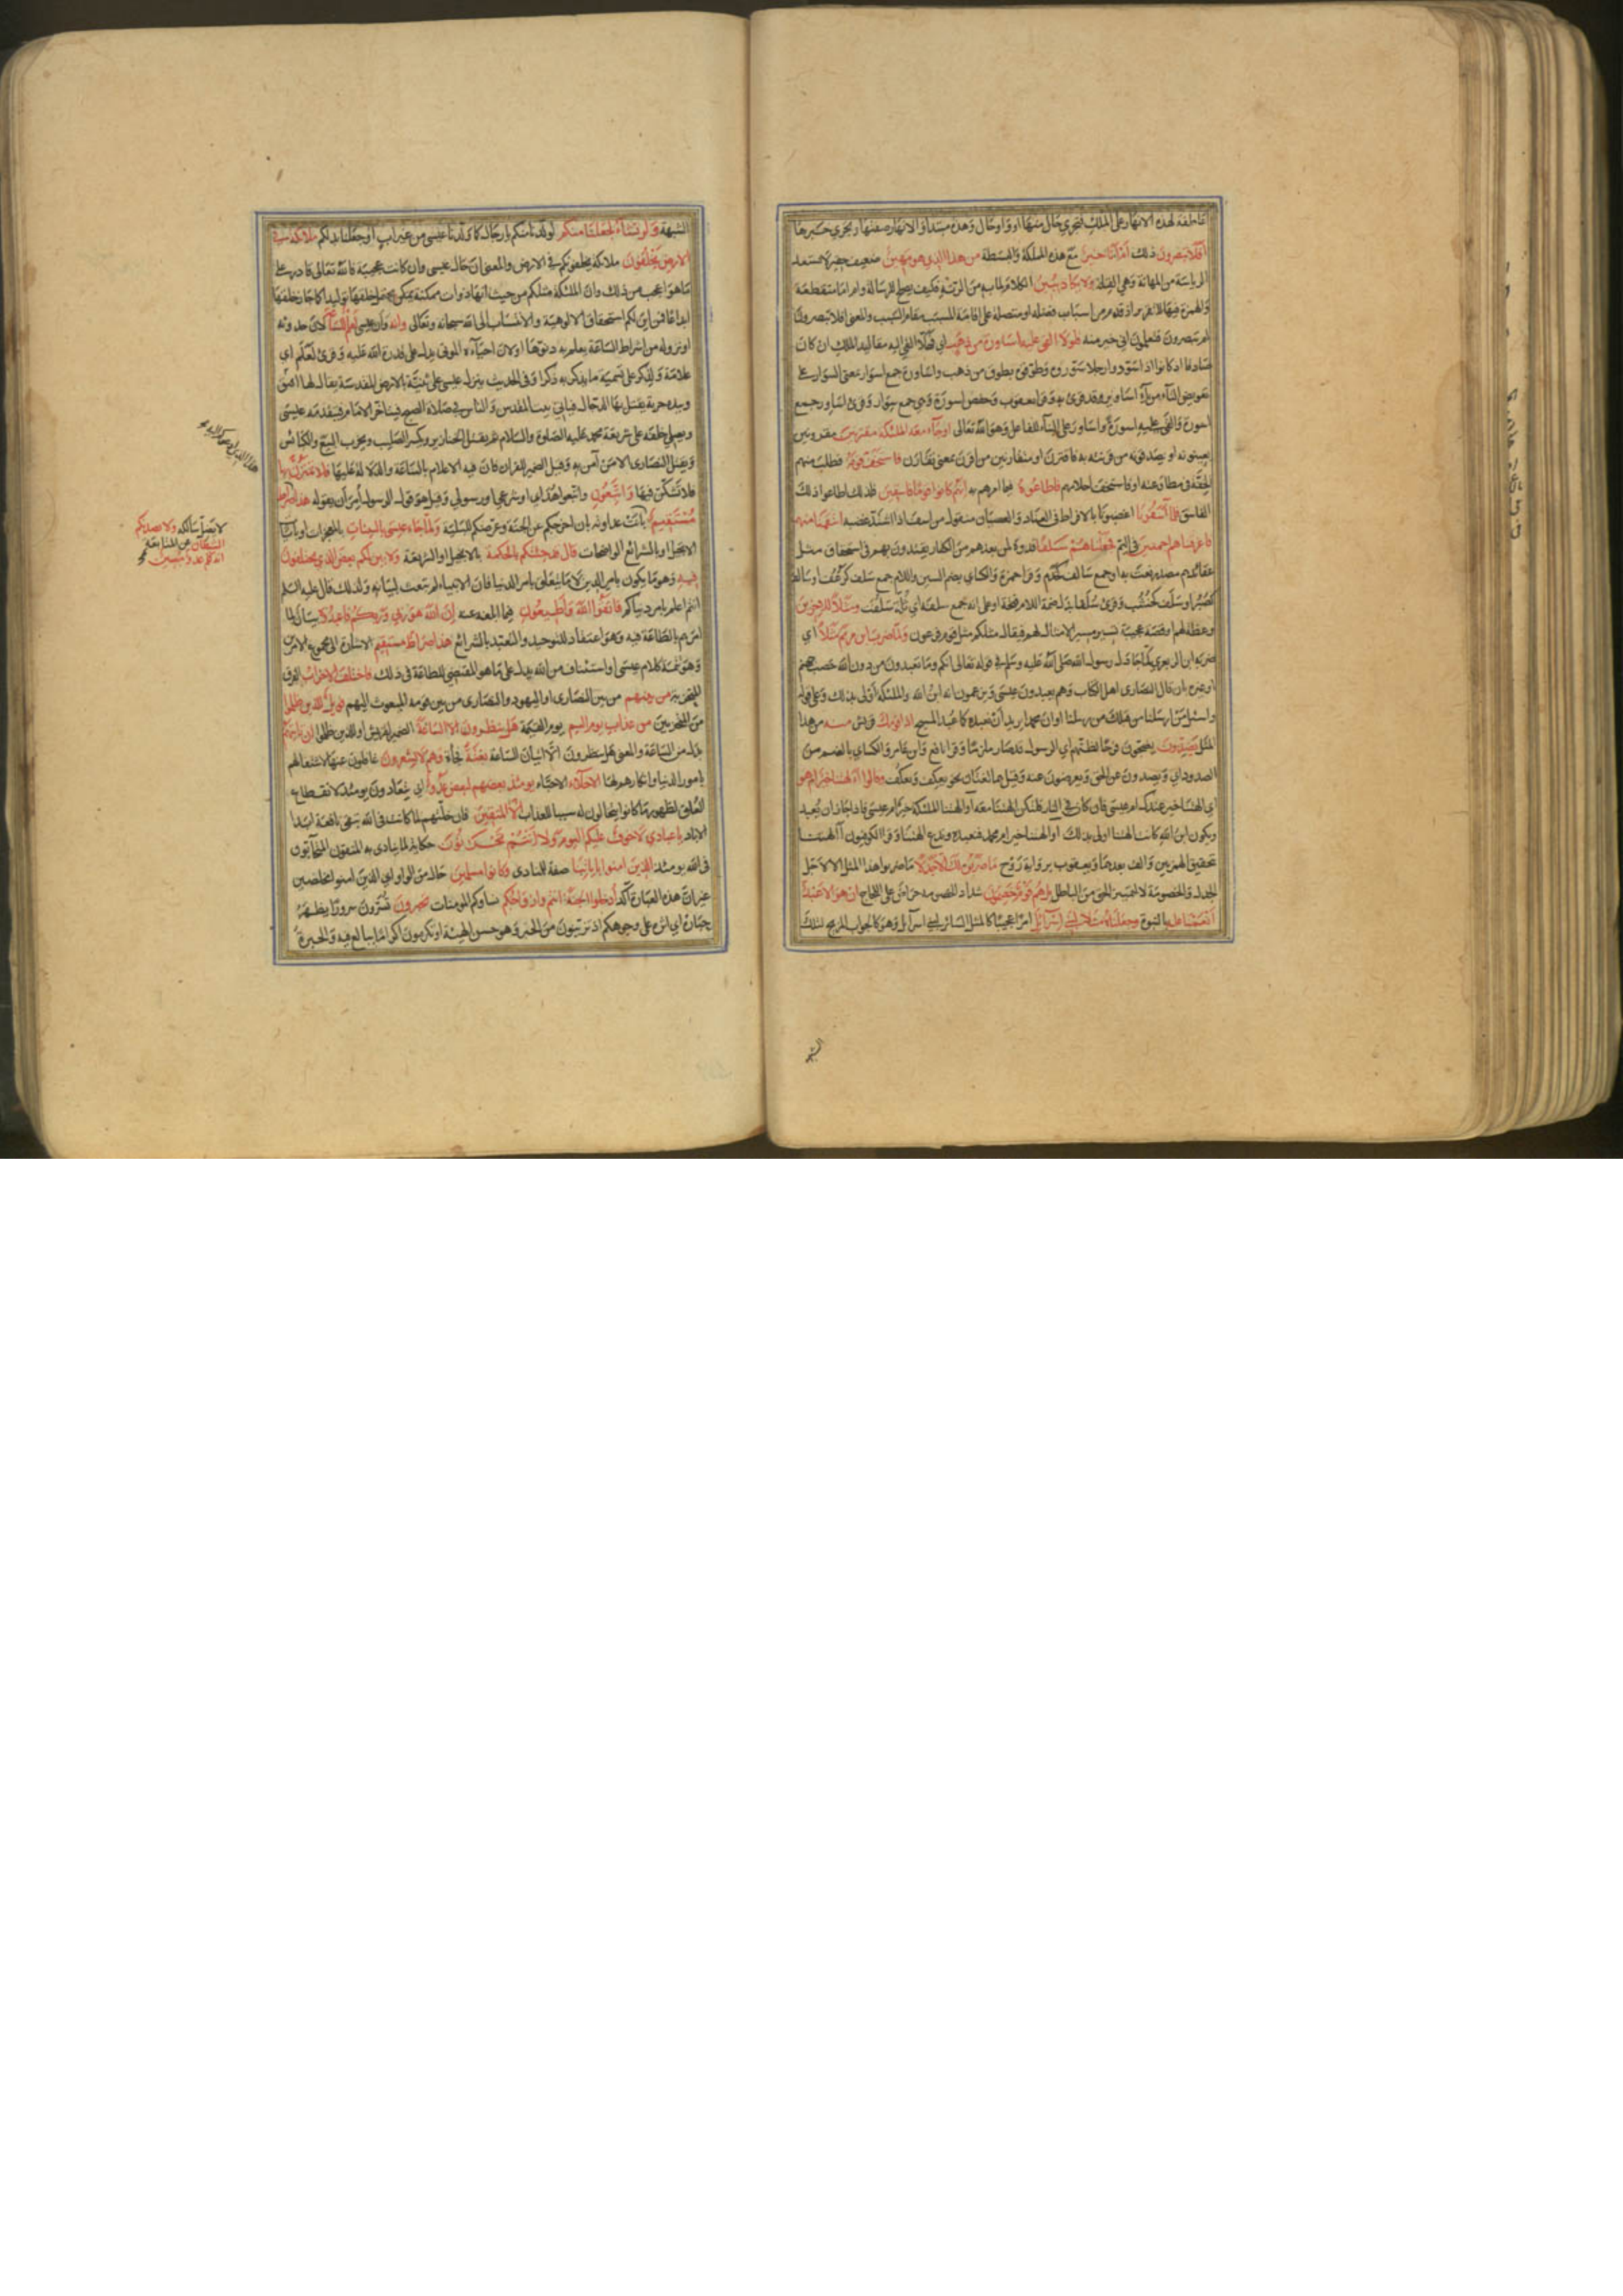 عاطفة لهذه الانهار على الملك فتجري حال منها او واو حال وهذه مبتدأ والانهار صفتها وتجري خبرها
أفلا تبصرون ذلك أم أنا خير مع هذه المملكة والبسطة من هذا الذي هو مهين ضعيف حقير لا يستعد
الرياسة من المهانة وهي القلة ولا يكاد يبين الكلام لما به من الرتة فكيف يصلح للرسالة وام اما منقطعة
والهمزة فيها للتقرير اذ قدم من اسباب فضله او متصلة على اقامة المسبب مقام السبب والمعنى افلا تبصرون
ام تبصرون فتعلمون اني خير منه فلولا القي عليه اساورة من ذهب اي فهلا القي اليه مقاليد الملك ان كان
صادقا اذ كانوا اذا سودوا رجلا سوروه وطوقوه بطوق من ذهب واساورة جمع اسوار بمعنى السوار على
تعويض التاء من ياء اساوير وقد قرئ به وقرا يعقوب وحفص اسورة وهي جمع سوار وقرئ اساور جمع
اسورة والقي عليه اسورة واساور على البناء للفاعل وهو الله تعالى او جاء معه الملئكة مقترنين مقرونين
يعينونه او يصدقونه من قرنته به فاقترن او متقارنين من اقترن بمعنى تقارن فاستخف قومه فطلب منهم
الخفة في مطاوعته او فاستخف احلامهم فاطاعوه فيما امرهم به انهم كانوا قوما فاسقين فلذلك اطاعوا ذلك
الفاسق فلما آسفونا اغضبونا بالافراط في العناد والعصيان منقول من اسف اذا اشتد غضبه انتقمنا منهم
فاغرقناهم اجمعين في اليم فجعلناهم سلفا قدوة لمن بعدهم من الكفار يقتدون بهم في استحقاق مثل
عقابهم مصدر نعت به او جمع سالف كخدم وقرا حمزة والكسائي بضم السين واللام جمع سليف كرغف او سالف
كصبر او سلف كخشب وقرئ سلفا بابدال ضمة اللام فتحة او على انه جمع سلفة اي ثلة سلفت ومثلا للاخرين
وعظة لهم او قصة عجيبة تسير مسير الامثال لهم فيقال مثلكم مثل قوم فرعون ولما ضرب ابن مريم مثلا اي
ضربه ابن الزبعري لما جادل رسول الله صلى الله عليه وسلم في قوله تعالى انكم وما تعبدون من دون الله حصب جهنم
او غيره بان قال النصارى اهل الكتاب وهم يعبدون عيسى ويزعمون انه ابن الله والملئكة اولى بذلك وعلى قوله
واسئل من ارسلنا من قبلك من رسلنا او ان محمدا يريد ان نعبده كما عبد المسيح اذا قومك قريش منه من هذا
المثل يصدون يضجون فرحا لظنهم اي الرسول قد صار ملزما وقرا نافع وابن عامر والكسائي بالضم من
الصدود اي ويصدون عن الحق ويعرضون عنه وقيل هما لغتان نحو يعكف ويعكف وقالوا أآلهتنا خير ام هو
اي آلهتنا خير عندك ام عيسى فان كان في النار فلتكن آلهتنا معه او آلهتنا الملئكة خير ام عيسى فاذا جاز ان يعبد
ويكون ابن الله كانت آلهتنا اولى بذلك او آلهتنا خير ام محمد فنعبده وندع آلهتنا وقرا الكوفيون أآلهتنا
بتحقيق الهمزتين والف بعدهما ويعقوب برواية روح ما ضربوه لك الا جدلا ما ضربوا هذا المثل الا لاجل
الجدل والخصومة لا لتمييز الحق من الباطل بل هم قوم خصمون شداد الخصومة حراص على اللجاج ان هو الا عبد
انعمنا عليه بالنبوة وجعلناه مثلا لبني اسرائيل امرا عجيبا كالمثل السائر لبني اسرآئيل وهو كالجواب المزيح لتلك
الشبهة
الشبهة ولو نشاء لجعلنا منكم لولدنا منكم يا رجال كما ولدنا عيسى من غير اب او جعلنا بدلكم ملائكة في
الارض يخلفون ملائكة يخلفونكم في الارض والمعنى ان حال عيسى وان كانت عجيبة فالله تعالى قادر على
ما هو اعجب من ذلك وان الملئكة مثلكم من حيث انها ذوات ممكنة يحتمل خلقها توليدا كما جاز خلقها
ابداعا فمن اين لكم استحقاق الالوهية والانتساب الى الله سبحانه وتعالى وانه وان عيسى لعلم للساعة لان حدوثه
او نزوله من اشراط الساعة يعلم به دنوها او لان احياءه الموتى يدل على قدرة الله عليه وقرئ لعلم اي
علامة ولذكر على تسمية ما يذكر به ذكرا وفي الحديث ينزل عيسى على ثنية بالارض المقدسة يقال لها افيق
وبيده حربة يقتل بها الدجال فياتي بيت المقدس والناس في صلاة الصبح فيتاخر الامام فيقدمه عيسى
ويصلي خلفه على شريعة محمد عليه الصلوة والسلام ثم يقتل الخنازير ويكسر الصليب ويخرب البيع والكنائس
ويقتل النصارى الا من آمن به وقيل الضمير للقران فان فيه الاعلام بالساعة والدلالة عليها فلا تمترن بها
فلا تشكن فيها واتبعون واتبعوا هداي او شرعي او رسولي وقيل هو قول الرسول امر ان يقوله هذا صراط
مستقيم ثابت عداوته بان اخرجكم عن الجنة وعرضكم للبلية ولما جاء عيسى بالبينات بالمعجزات او بآيات
الانجيل او بالشرائع الواضحات قال قد جئتكم بالحكمة بالانجيل او الشريعة ولابين لكم بعض الذي يختلفون
فيه وهو ما يكون بامر الدين لا ما يتعلق بامر الدنيا فان الانبياء لم تبعث لبيانه ولذلك قال عليه السلم
انتم اعلم بامر دنياكم فاتقوا الله واطيعون فيما ابلغه عنه ان الله هو ربي وربكم فاعبدوه بيان لما
امرهم بالطاعة فيه وهو اعتقاد التوحيد والتعبد بالشرائع هذا صراط مستقيم الاشارة الى مجموع الامرين
وهو تتمة كلام عيسى او استئناف من الله يدل على ما هو المقتضي للطاعة في ذلك فاختلف الاحزاب الفرق
المتحزبة من بينهم من بين النصارى او اليهود والنصارى من بين قومه المبعوث اليهم فويل للذين ظلموا
من المتحزبين من عذاب يوم اليم يوم القيمة هل ينظرون الا الساعة الضمير لقريش او للذين ظلموا ان تاتيهم
بدل من الساعة والمعنى هل ينظرون الا اتيان الساعة بغتة فجأة وهم لا يشعرون غافلون عنها لاشتغالهم
بامور الدنيا وانكارهم لها الاخلاء الاحباء يومئذ بعضهم لبعض عدو اي يتعادون يومئذ لانقطاع
العلق لظهور ما كانوا يتخالون له سببا للعذاب الا المتقين فان خلتهم لما كانت في الله تبقى نافعة ابدا
الاباد يا عبادي لا خوف عليكم اليوم ولا انتم تحزنون حكاية لما ينادى به المتقون المتحابون
في الله يومئذ الذين امنوا باياتنا صفة للمنادى وكانوا مسلمين حال من الواو اي الذين امنوا مخلصين
غير ان هذه العبارة آكد ادخلوا الجنة انتم وازواجكم نساؤكم المومنات تحبرون تسرون سرورا يظهر
حباره اي اثره على وجوهكم او تزينون من الحبر وهو حسن الهيئة او تكرمون اكراما يبالغ فيه والحبرة
لا يضل سالكه ولا يصدنكم
الشيطان عن المتابعة
انه لكم عدو مبين